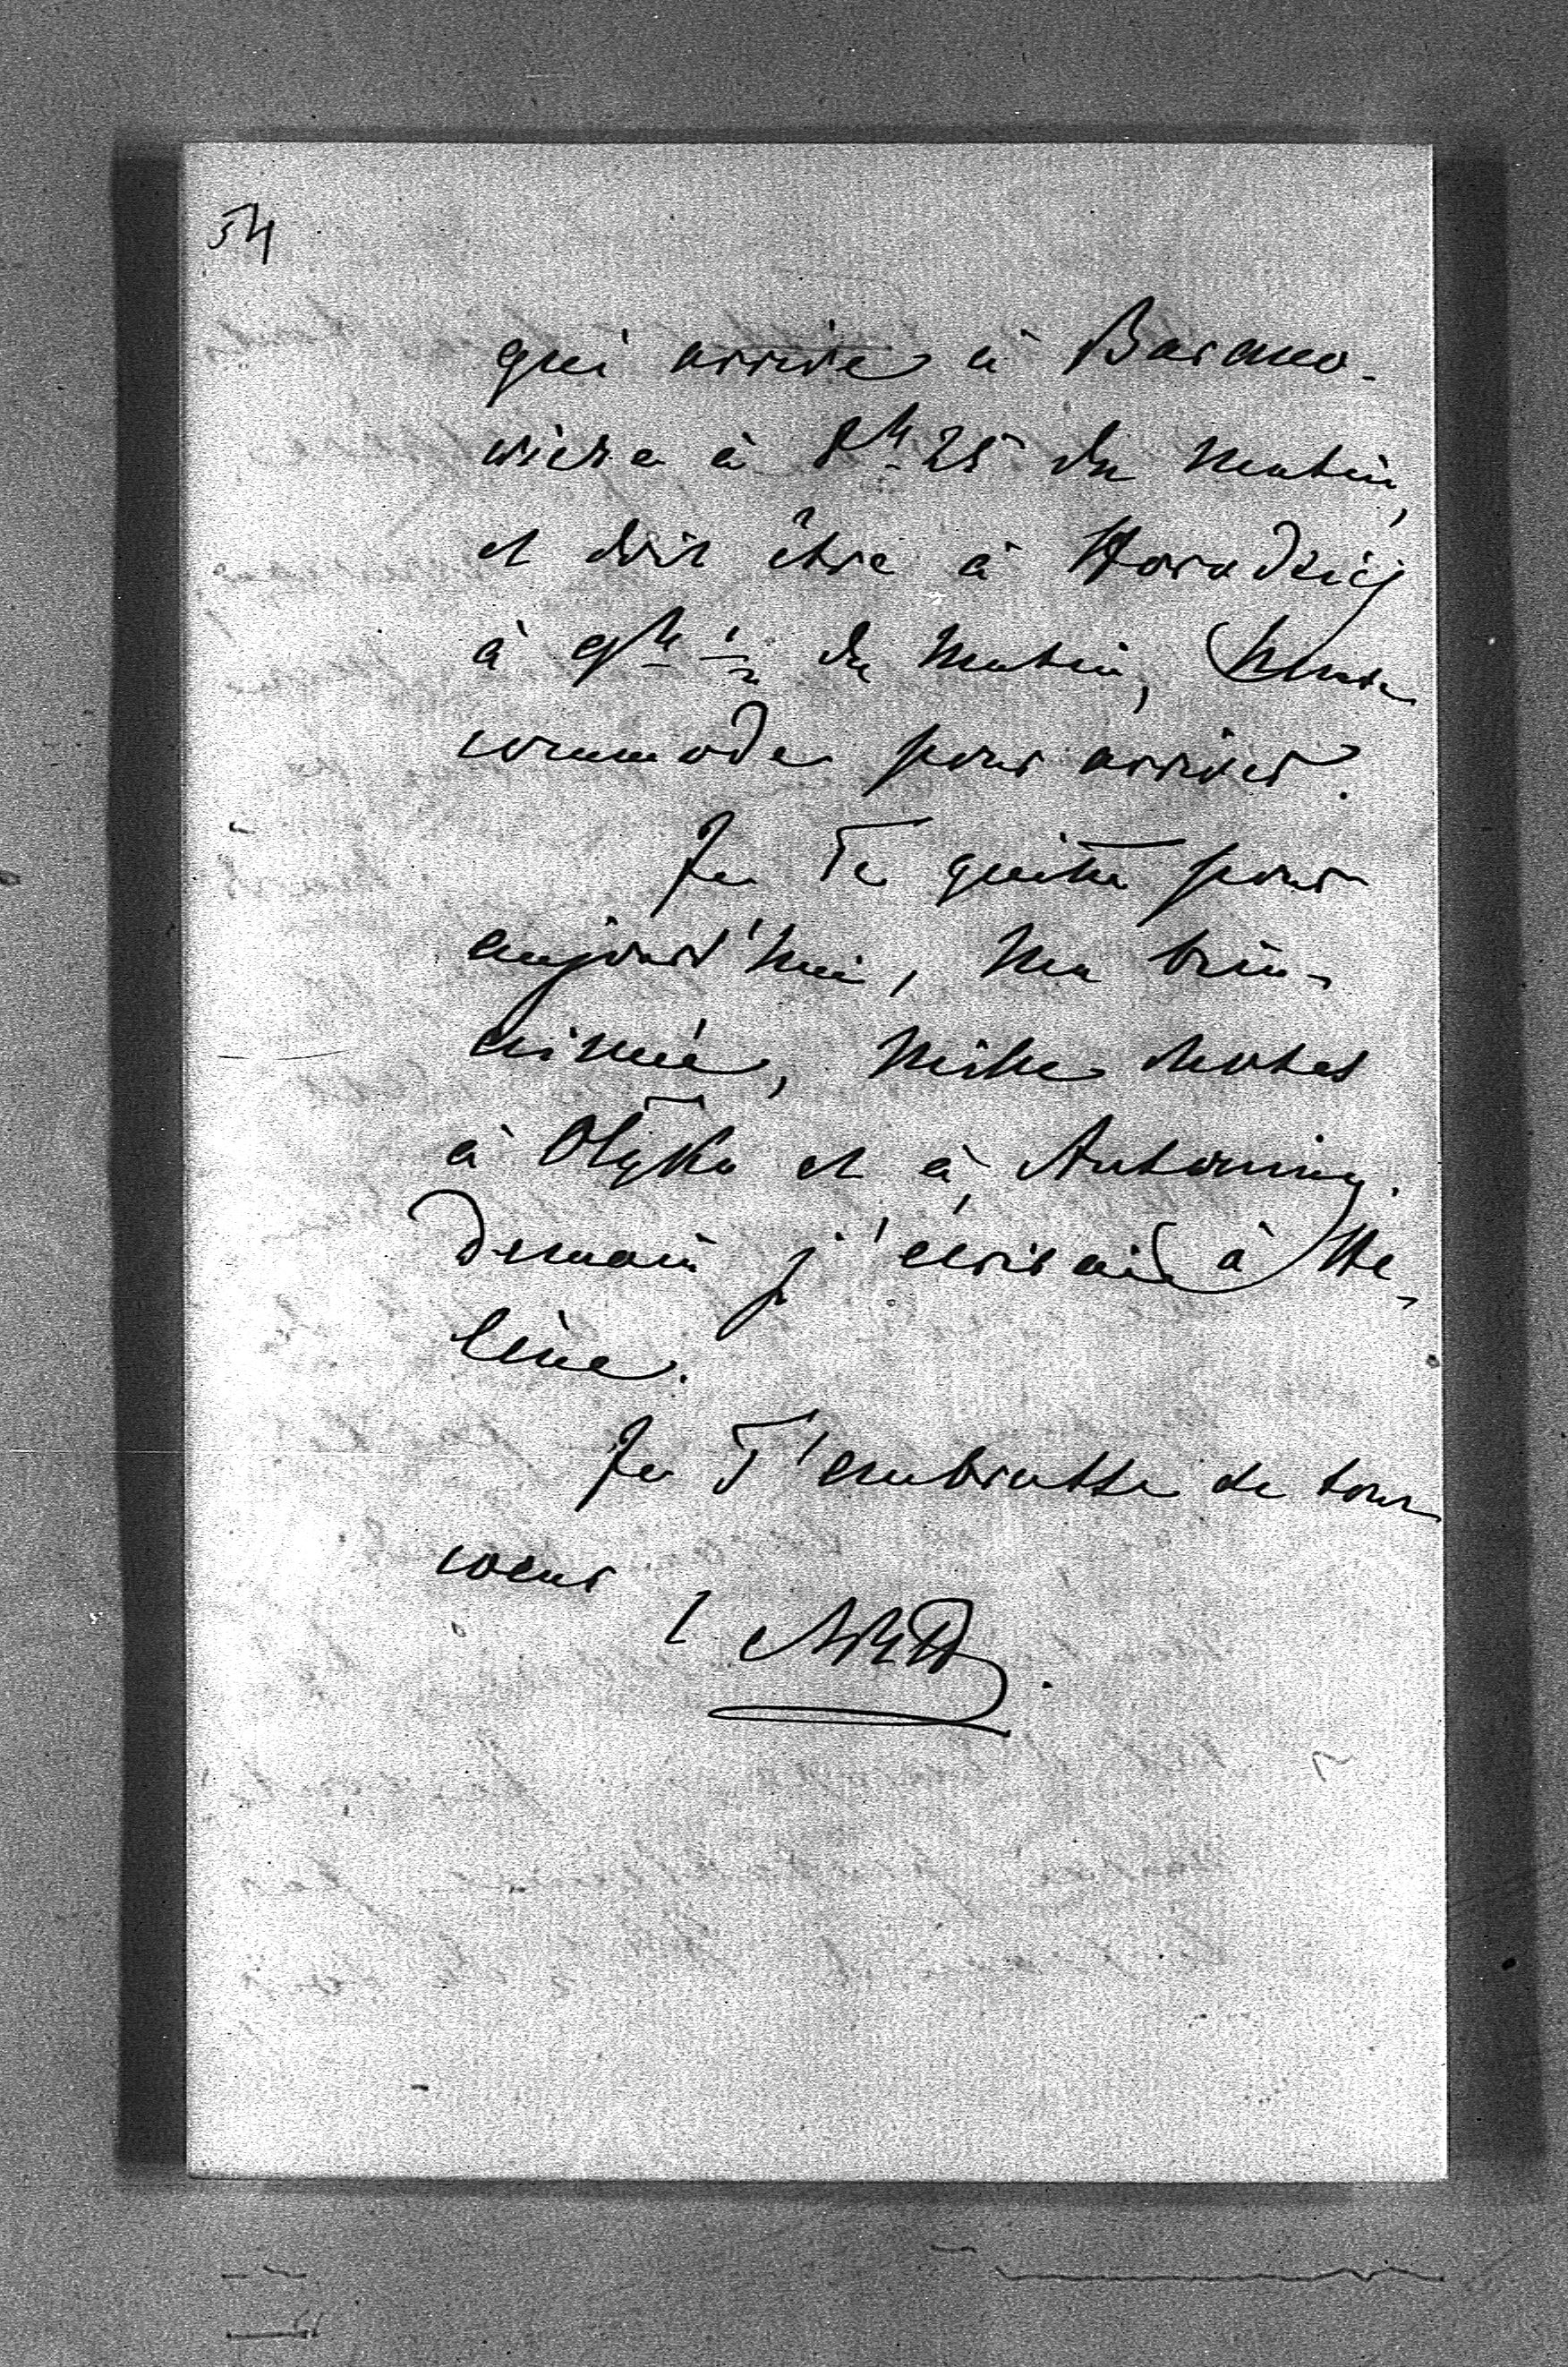 54
qui arrive à Barano-
wicze à 8h 25 du matin,
et doit être à Horodziej
à 9h ½ du matin, heure
commode pour arriver.
Je Te quitte pour
aujourd'hui, ma bien-
aimée, mille choses
à Olyka et à Antoniny.
Demain j'écrirai à He-
lène.
Je T'embrasse de tout
coeur